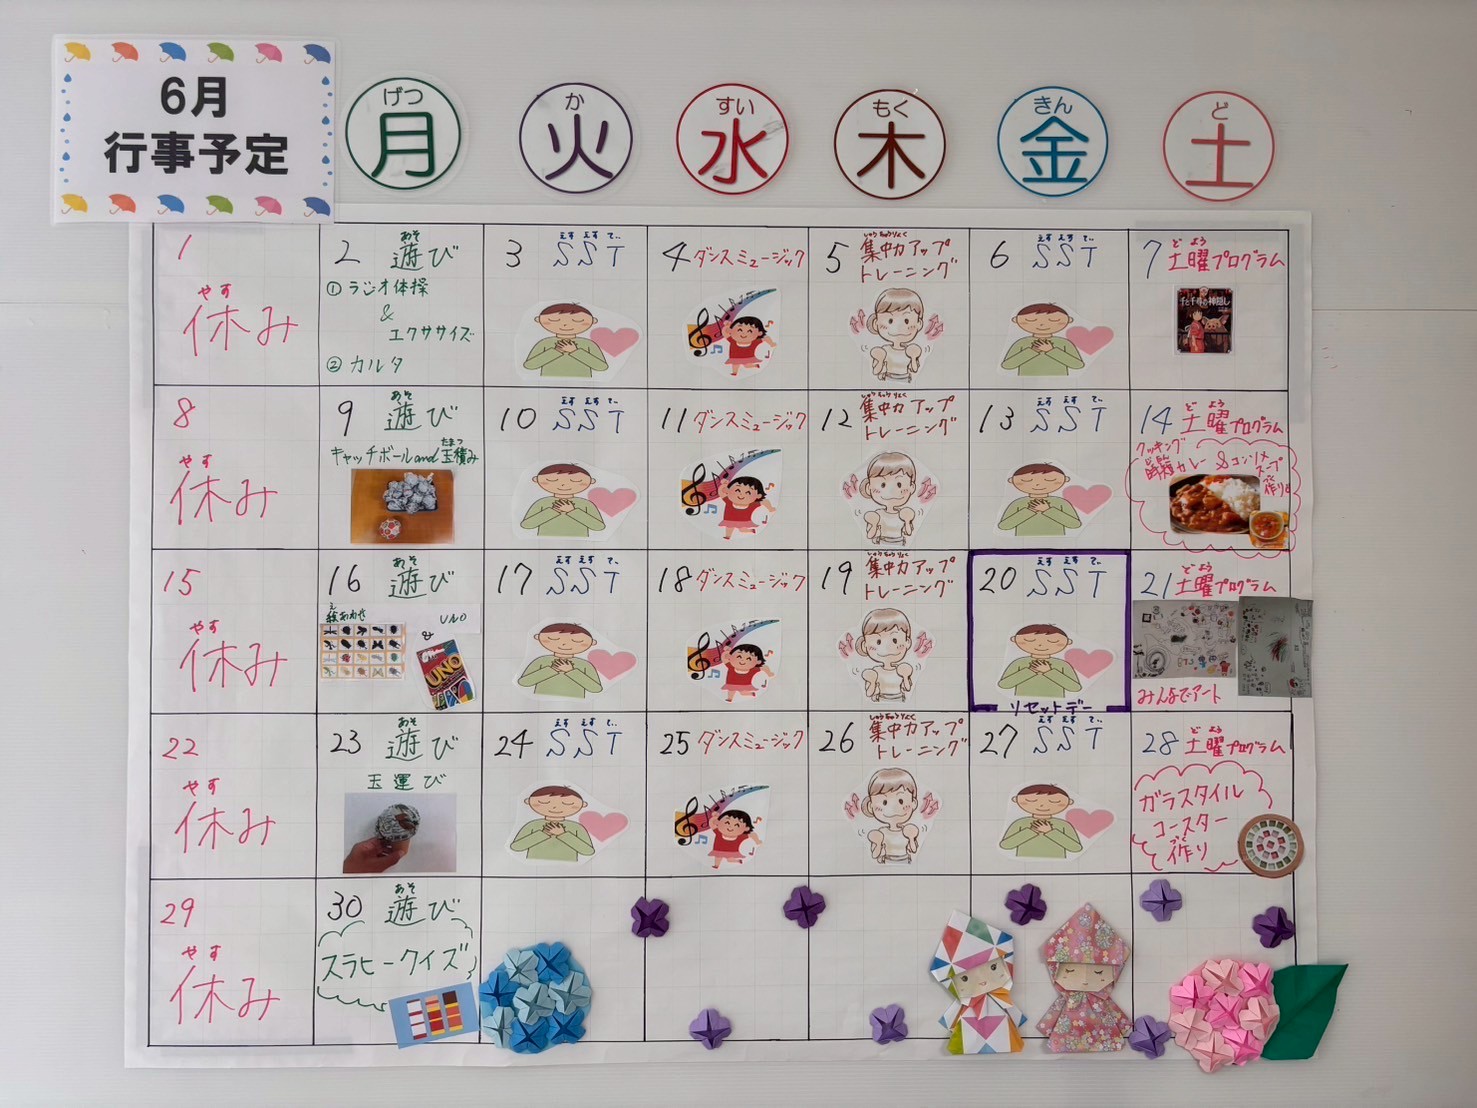 6月
行事予定
げつ
月
か
火
すい
水
もく
木
きん
金
ど
土
1
やす
休み
2 遊び
あそ
①ラジオ体操
&
エクササイズ
②カルタ
3 SST
えすえすてぃ
4 ダンスミュージック
5 集中力アップ
しゅうちゅうりょく
トレーニング
6 SST
えすえすてぃ
7 土曜プログラム
どよう
千と千尋の神隠し
8
やす
休み
9 遊び
あそ
キャッチボールand玉積み
たまつ
10 SST
えすえすてぃ
11 ダンスミュージック
12 集中力アップ
しゅうちゅうりょく
トレーニング
13 SST
えすえすてぃ
14 土曜プログラム
どよう
クッキング
カレー&コンソメ
スープ
作り
15
やす
休み
16 遊び
あそ
絵あわせ
え
&
UNO
UNO
17 SST
えすえすてぃ
18 ダンスミュージック
19 集中力アップ
しゅうちゅうりょく
トレーニング
20 SST
えすえすてぃ
リセットデー
21 土曜プログラム
どよう
みんなでアート
22
やす
休み
23 遊び
あそ
玉運び
24 SST
えすえすてぃ
25 ダンスミュージック
26 集中力アップ
しゅうちゅうりょく
トレーニング
27 SST
えすえすてぃ
28 土曜プログラム
どよう
ガラスタイル
コースター
作り
づく
29
やす
休み
30 遊び
あそ
スラヒークイズ